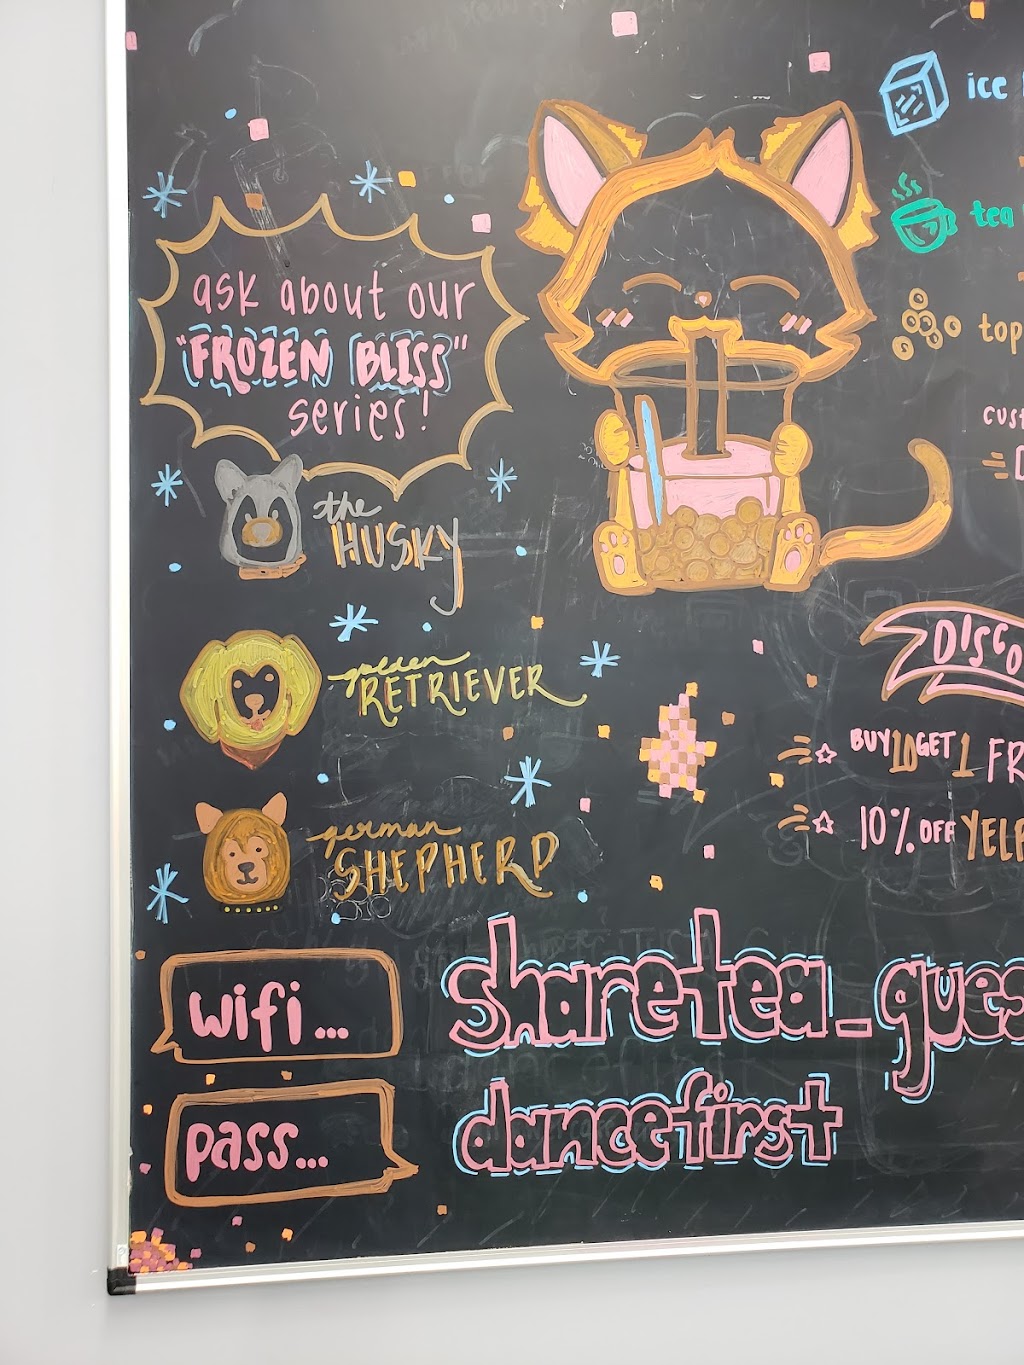 ask about our
"FROZEN BLISS"
series!
the
HUSKY
golden
RETRIEVER
german
SHEPHERD
wifi...
sharetea_gues
pass...
dancefirst
ice
tea
top
cust
DISCO
BUY 10 GET 1 FR
10% OFF YELP